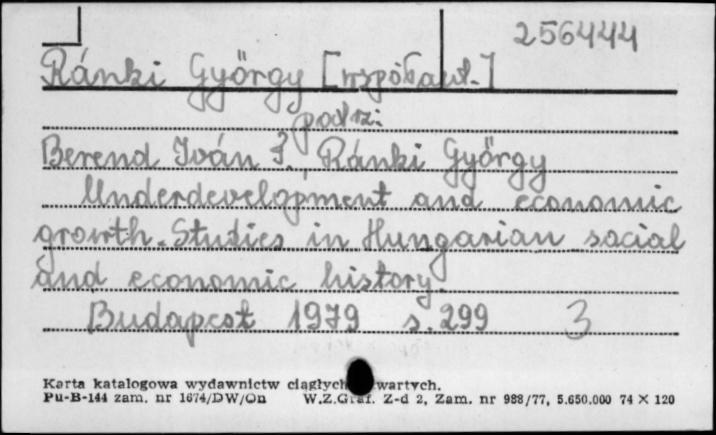 256444
Ránki György [współaut.]
patrz:
Berend Iván T., Ránki György
Underdevelopment and economic
growth. Studies in Hungarian social
and economic history.
Budapest 1979 s. 299 3
Karta katalogowa wydawnictw ciągłych zwartych.
Pu-B-144 zam. nr 1674/DW/On W.Z.Graf. Z-d 2, Zam. nr 988/77, 5.650.000 74 X 120